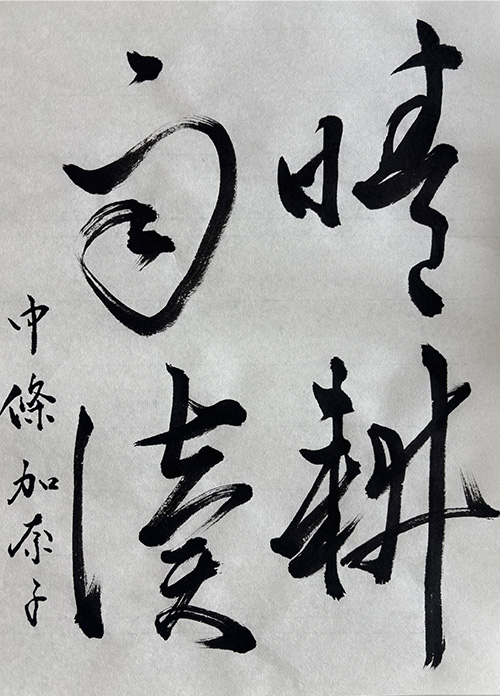 晴耕
雨読
中條加奈子